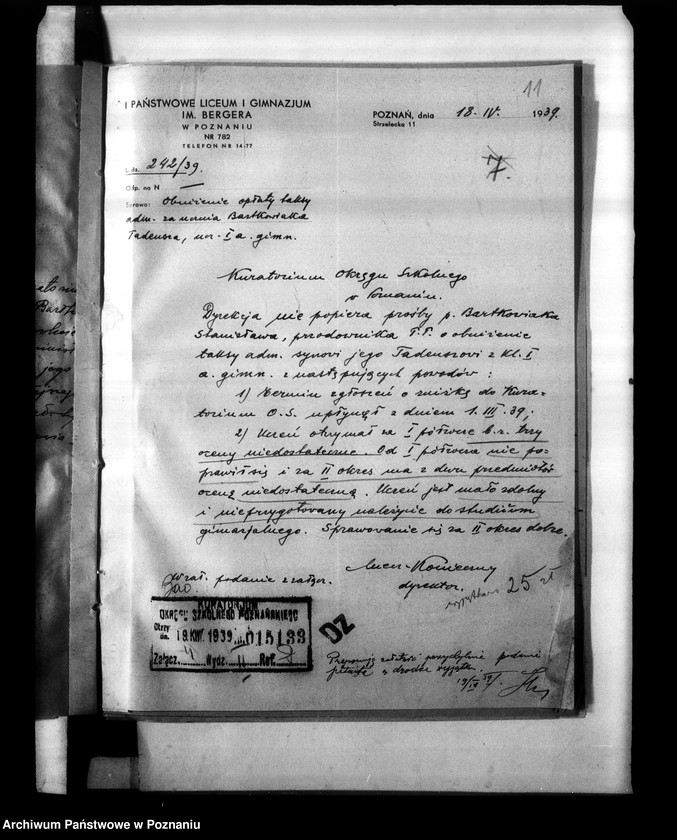 11
I PAŃSTWOWE LICEUM I GIMNAZJUM
IM. BERGERA
W POZNANIU
NR 782
TELEFON NR 14-77
POZNAŃ, dnia 18. IV. 1939.
Strzelecka 11
L. dz. 242/39.
7.
Odp. na N —
Sprawa: Obniżenie opłaty taksy
adm. za ucznia Bartkowiaka
Tadeusza, ucz. I a. gimn.
Kuratorium Okręgu Szkolnego
w Poznaniu.
Dyrekcja nie popiera prośby p. Bartkowiaka
Stanisława, przodownika P.P. o obniżenie
taksy adm. synowi jego Tadeuszowi z kl. I
a. gimn. z następujących powodów:
1) Termin zgłoszeń o zniżkę do Kura-
torium O.S. upłynął z dniem 1. III. 39;
2) Uczeń otrzymał za I półrocze b.r. trzy
oceny niedostateczne. Od I półrocza nie po-
prawił się i za II okres ma z dwu przedmiotów
ocenę niedostateczną. Uczeń jest mało zdolny
i nieprzygotowany należycie do studiów
gimnazjalnego. Sprawowanie się za II okres dobre.
W zał. podanie z załącz.
dyrektor.
wyjątkowo 25 zł
KURATORJUM
OKRĘGU SZKOLNEGO POZNAŃSKIEGO
Otrzym.
dn. 19. KWI. 1939 015133
Załącz. 4 Wydz. II Ref.
DZ
Proponuję załatwić przychylnie podanie
petenta w drodze wyjątku.
19/IV 39.
Archiwum Państwowe w Poznaniu